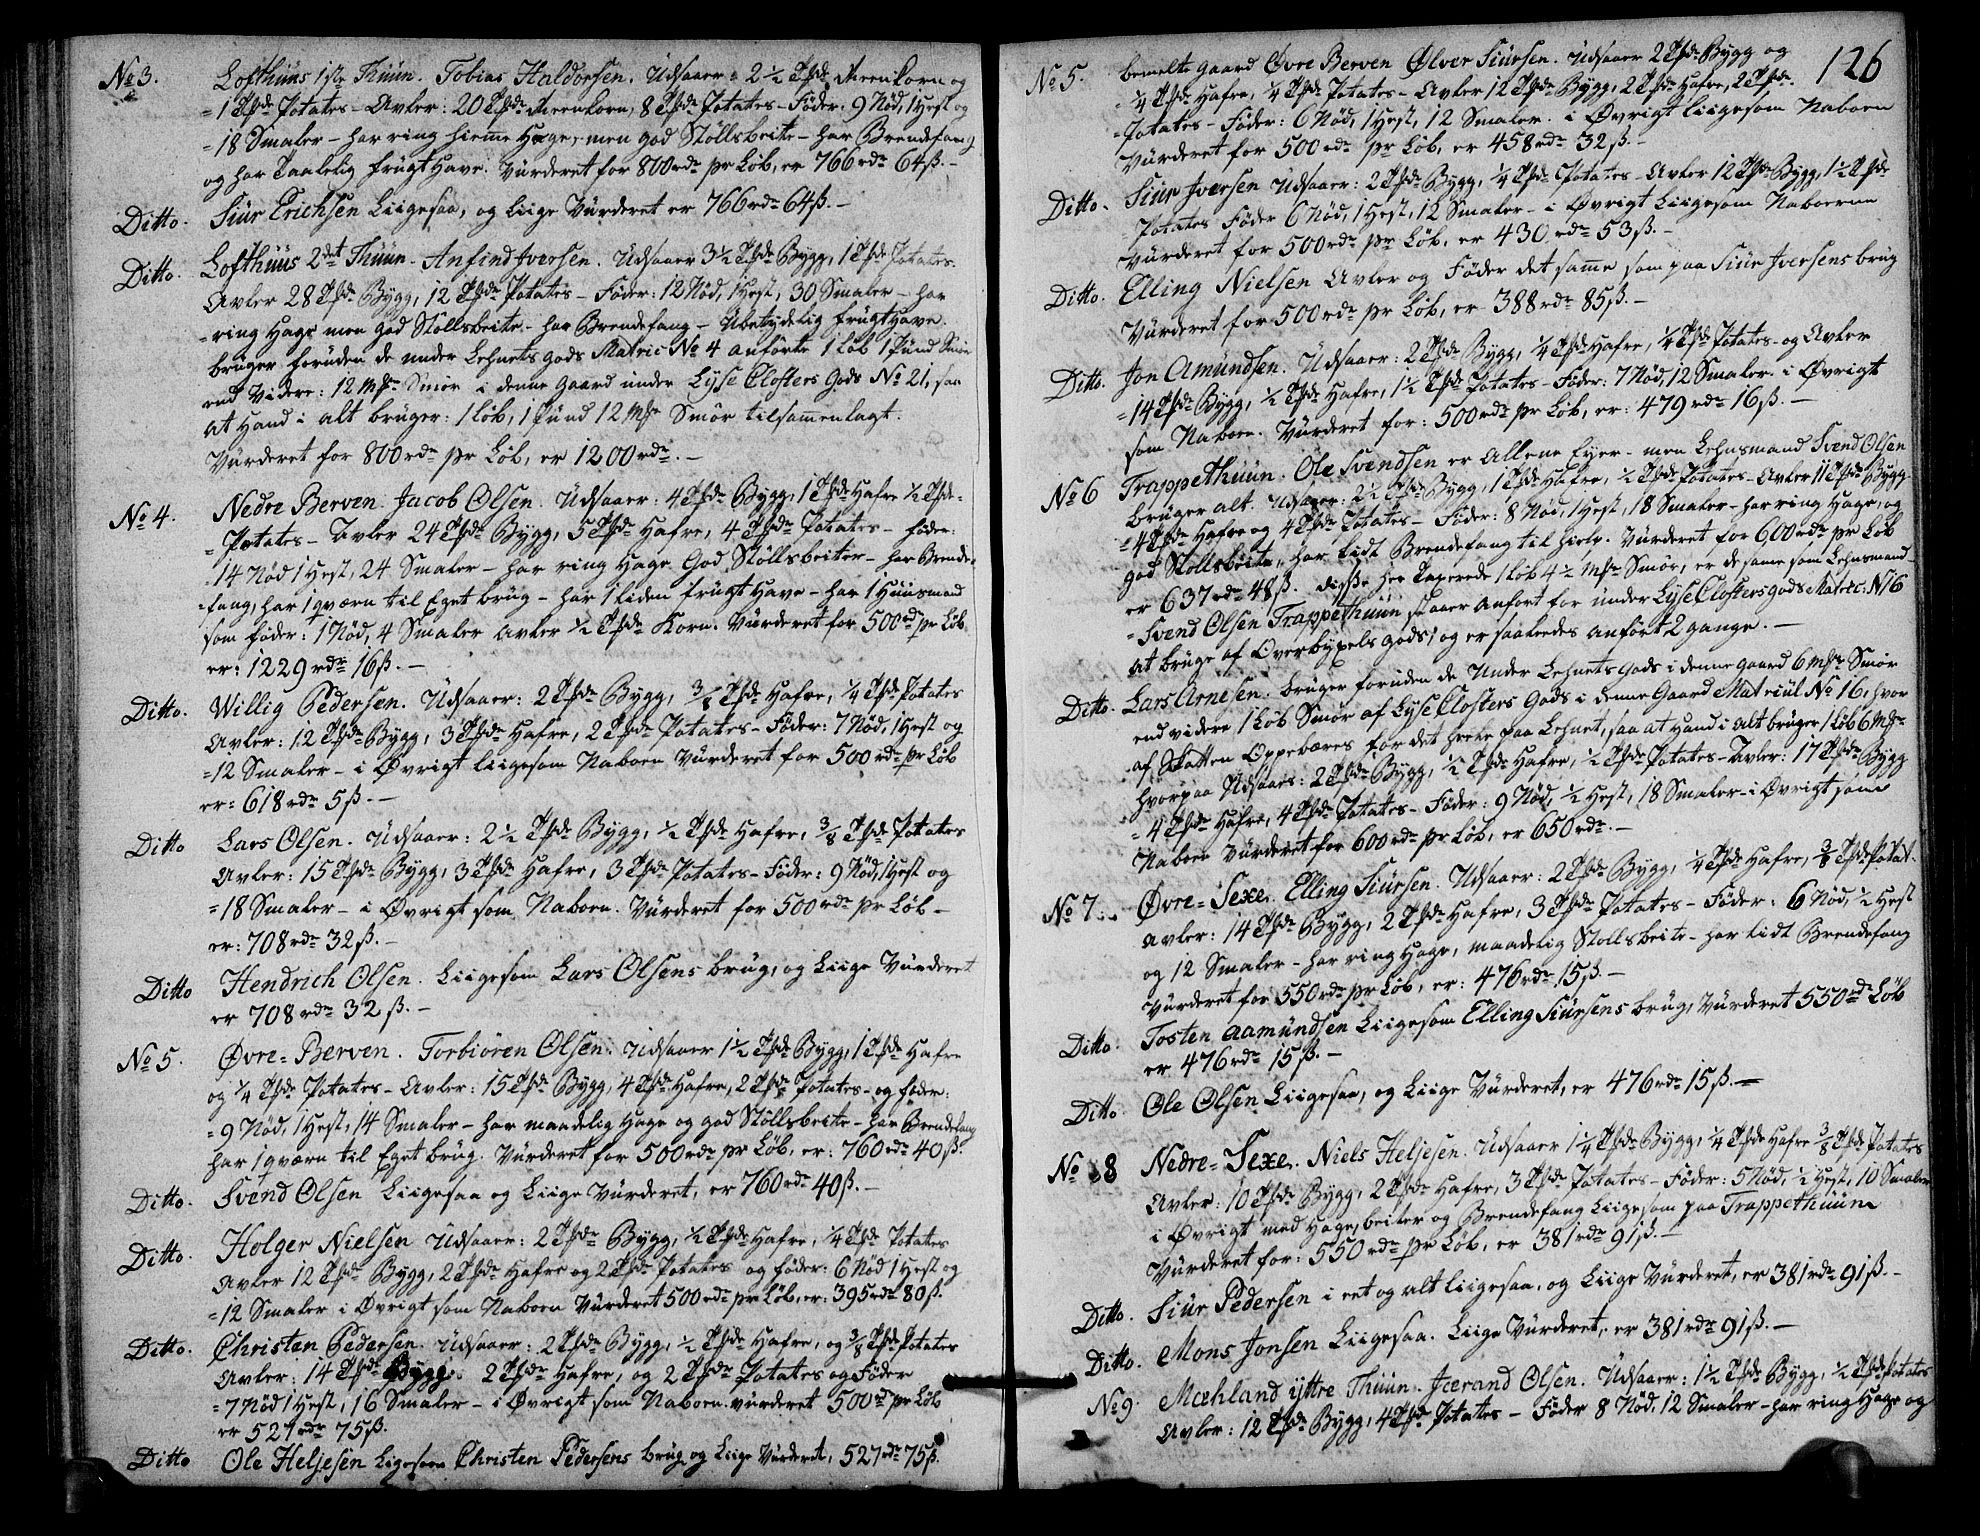 No 3. Lofthuus 1ste Thuun. Tobias Haldorsen. Udsaaer = 2 1/2 Tønde Meenkorn og
= 1 Tønde Potates – Avler: 20 Tønder Meenkorn, 8 Tønder Potates – Føder: 9 Nød, 1 Hest og
= 18 Smaler – har ring hiemme Hage, men god Støllsbeite – har Brendefang
og har Taalelig frugt Have. Vurderet for 800 rdr pr Løb, er 766 rdr 64 ß. –
Ditto. Siur Erichsen Liigesaa, og Liige Vurderet er 766 rdr 64 ß. –
Ditto. Lofthuus 2det Thuun. Anfind Iversen. Udsaaer 3 1/2 Tønde Bygg, 1 Tønde Potates.
Avler 28 Tønder Bygg, 12 Tønder Potates – Føder: 12 Nød, 1 Hest, 30 Smaler – har
= ring Hage men god Støllsbeite – har Brendefang – Ubetydelig frugt Have.
bruger foruden de under Lehnets gods Matric No 4 anførte 1 Løb 1 Pund Smør
end Videre: 12 Mrk Smør i denne gaard under Lyse Closters Gods No 21, saa
at Hand i alt bruger: 1 Løb, 1 Pund 12 Mrk Smør tilsammenlagt.
Vurderet for 800 rdr pr Løb, er 1200 rdr. –
No 4. Nedre Berven. Jacob Olsen. Udsaaer: 4 Tønder Bygg, 1 Tønde Hafre 1/2 Tønde
= Potates – Avler 24 Tønder Bygg, 5 Tønder Hafre, 4 Tønder Potates – føder:
14 Nød 1 Hest, 24 Smaler – har ring Hage, God Støllsbeiter – har Brende=
= fang, har 1 qværn til Eget brug – har 1 liden frugt Have – har 1 Huusmand
som føder: 1 Nød, 4 Smaler Avler 1/2 Tønde Korn. Vurderet for 500 rdr pr Løb
er: 1229 rdr 16 ß. –
Ditto. Willig Pedersen. Udsaaer: 2 Tønder Bygg, 3/8 Tønde Hafre, 1/4 Tønde Potates
Avler: 12 Tønder Bygg, 3 Tønder Hafre, 2 Tønder Potates – Føder: 7 Nød, 1 Hest og
= 12 Smaler – i Øvrigt liigesom Naboen Vurderet for 500 rdr pr Løb
er = 618 rdr 5 ß. –
Ditto Lars Olsen. Udsaaer: 2 1/2 Tønde Bygg, 1/2 Tønde Hafre, 3/8 Tønde Potates
Avler: 15 Tønder Bygg, 3 Tønder Hafre, 3 Tønder Potates – Føder: 9 Nød, 1 Hest og
= 18 Smaler – i Øvrigt som Naboen. Vurderet for 500 rdr pr Løb –
er: 708 rdr 32 ß. –
Ditto Hendrich Olsen. Liigesom Lars Olsens brug, og Liige Vurderet
er 708 rdr 32 ß. –
No 5. Øvre = Berven. Torbiøren Olsen. Udsaaer 1 1/2 Tønde Bygg, 1 Tønde Hafre
og 1/4 Tønde Potates – Avler: 15 Tønder Bygg, 4 Tønder Hafre, 2 Tønder Potates – og føder:
= 9 Nød, 1 Hest, 14 Smaler – har maadelig Hage og god Støllsbeite – har Brendefang
har 1 qværn til Eget brug. Vurderet for 500 rdr pr Løb, er: 760 rdr 40 ß.
Ditto. Svend Olsen Liigesaa og Liige Vurderet, er 760 rdr 40 ß. –
Ditto. Holger Nielsen Udsaaer: 2 Tønder Bygg, 1/2 Tønde Hafre, 1/4 Tønde Potates
Avler 12 Tønder Bygg, 2 Tønder Hafre og 2 Tønder Potates og føder: 6 Nød 1 Hest og
= 12 Smaler i Øvrigt som Naboen Vurderet 500 rdr pr Løb, er: 395 rdr 80 ß.
Ditto. Christen Pedersen. Udsaaer: 2 Tønder Bygg, 1/2 Tønde Hafre, og 3/8 Tønde Potates
Avler: 14 Tønder Bygg: 2 Tønder Hafre, og 2 Tønder Potates og Føder
= 7 Nød 1 Hest, 16 Smaler – i Øvrigt som Naboen. vurderet 500 rdr pr Løb
er 527 rdr 75 ß.
Ditto Ole Heljesen Ligesom Christen Pedersens brug og Liige Vurderet, 527 rdr 75 ß.
126
No 5. bemelte gaard Øvre Berven Ølver Siursen. Udsaaer 2 Tønder Bygg og
= 1/4 Tønde Hafre, 1/4 Tønde Potates – Avler 12 Tønder Bygg, 2 Tønder Hafre, 2 Tønder
= Potates – Føder: 6 Nød, 1 Hest, 12 Smaler. i Øvrigt liigesom Naboen
Vurderet for 500 rdr pr Løb, er 458 rdr 32 ß. –
Ditto. Siur Iversen Udsaaer: 2 Tønder Bygg, 1/4 Tønde Potates – Avler 12 Tønder Bygg, 1 1/2 Tønde
= Potates Føder 6 Nød, 1 Hest, 12 Smaler – i Øvrigt Liigesom Naboerne
Vurderet for 500 rdr pr Løb, er 430 rdr 53 ß. –
Ditto. Elling Nielsen Avler og Føder det samme som paa Siur Iversens brug
Vurderet for 500 rdr pr Løb, er 388 rdr 85 ß. –
Ditto. Jon Amundsen. Udsaaer: 2 Tønder Bygg, 1/4 Tønde Hafre, 1/4 Tønde Potates – og Avler
= 14 Tønder Bygg, 1/2 Tønde Hafre, 1 1/2 Tønde Potates – Føder: 7 Nød, 12 Smaler. i Øvrigt
som Naboen. Vurderet for: 500 rdr pr Løb, er: 479 rdr 16 ß. –
No 6 Trappethuun. Ole Svendsen er Allene Eyer – men Lehnsmand Svend Olsen
bruger alt. Udsaaer: 2 1/2 Tønde Bygg, 1 Tønde Hafre, 1/2 Tønde Potates – Avler 11 Tønder Bygg
= 4 Tønder Hafre og 4 Tønder Potates – Føder: 8 Nød, 1 Hest, 18 Smaler – har ring Hage, og
god Støllsbeite, har lidt Brendefang til hielp. Vurderet for 600 rdr pr Løb
er 637 rdr 48 ß. disse her Taxerede 1 Løb 4 1/2 Mrk Smør, er de samme som Lehnsmand
= Svend Olsen Trappethuun staaer Anført for under Lyse Closters gods Matric: No 6
at bruge af Overbypels gods, og er saaleedes anført 2 gange. –
Ditto. Lars Arnesen. bruger foruden de Under Lehnets gods i denne gaard 6 Mrk Smør
end videre 1 Løb Smør af Lyse Closters Gods i denne Gaard Matricul No 16, hvor
af Skatten Oppebæres for det heele paa Lehnet, saa at Hand i Alt bruger 1 Løb 6 Mrk
hvorpaa Udsaaes: 2 Tønder Bygg, 1/2 Tønde Hafre, 1/2 Tønde Potates – Avler: 17 Tønder Bygg
= 4 Tønder Hafre, 4 Tønder Potates – Føder: 9 Nød, 1/2 Hest, 18 Smaler – i Øvrigt som
Naboen Vurderet for 600 rdr pr Løb, er 650 rdr. –
No 7. Øvre = Sexe. Elling Siursen. Udsaaer: 2 Tønder Bygg, 1/4 Tønde Hafre, 3/8 Tønde Potat.
Avler: 14 Tønder Bygg, 2 Tønder Hafre, 3 Tønder Potates – Føder: 6 Nød, 1/2 Hest
og 12 Smaler – har ring Hage, maadelig Støllsbeite – har lidt Brendefang
Vurderet for 550 rdr pr Løb, er: 476 rdr 15 ß. –
Ditto. Tosten Aamundsen Liigesom Elling Siursens brug, Vurderet 550 rdr Løb
er 476 rdr 15 ß. –
Ditto. Ole Olsen Liigesaa, og Liige Vurderet, er 476 rdr 15 ß. –
No 8 Nedre = Sexe. Niels Heljesen. Udsaaer 1 1/4 Tønde Bygg, 1/4 Tønde Hafre 3/8 Tønde Potates
Avler: 10 Tønder Bygg, 2 Tønder Hafre, 3 Tønder Potates – Føder: 5 Nød, 1/2 Hest, 10 Smaler
i Øvrigt med Hage, beiter og Brendefang Liigesom paa Trappethuun
Vurderet for: 550 rdr pr Løb, er 381 rdr 91 ß. –
Ditto. Siur Pedersen i eet og alt Liigesaa, og Liige Vurderet, er 381 rdr 91 ß. –
Ditto. Mons Jonsen Liigesaa. Liige Vurderet, er 381 rdr 91 ß. –
No 9. Mæhland yttre Thuun. Joerand Olsen. Udsaaer: 1 1/2 Tønde Bygg, 1/2 Tønde Potates
Avler: 12 Tønder Bygg, 4 Tønder Potates – Føder 8 Nød, 12 Smaler – har ring Hage og